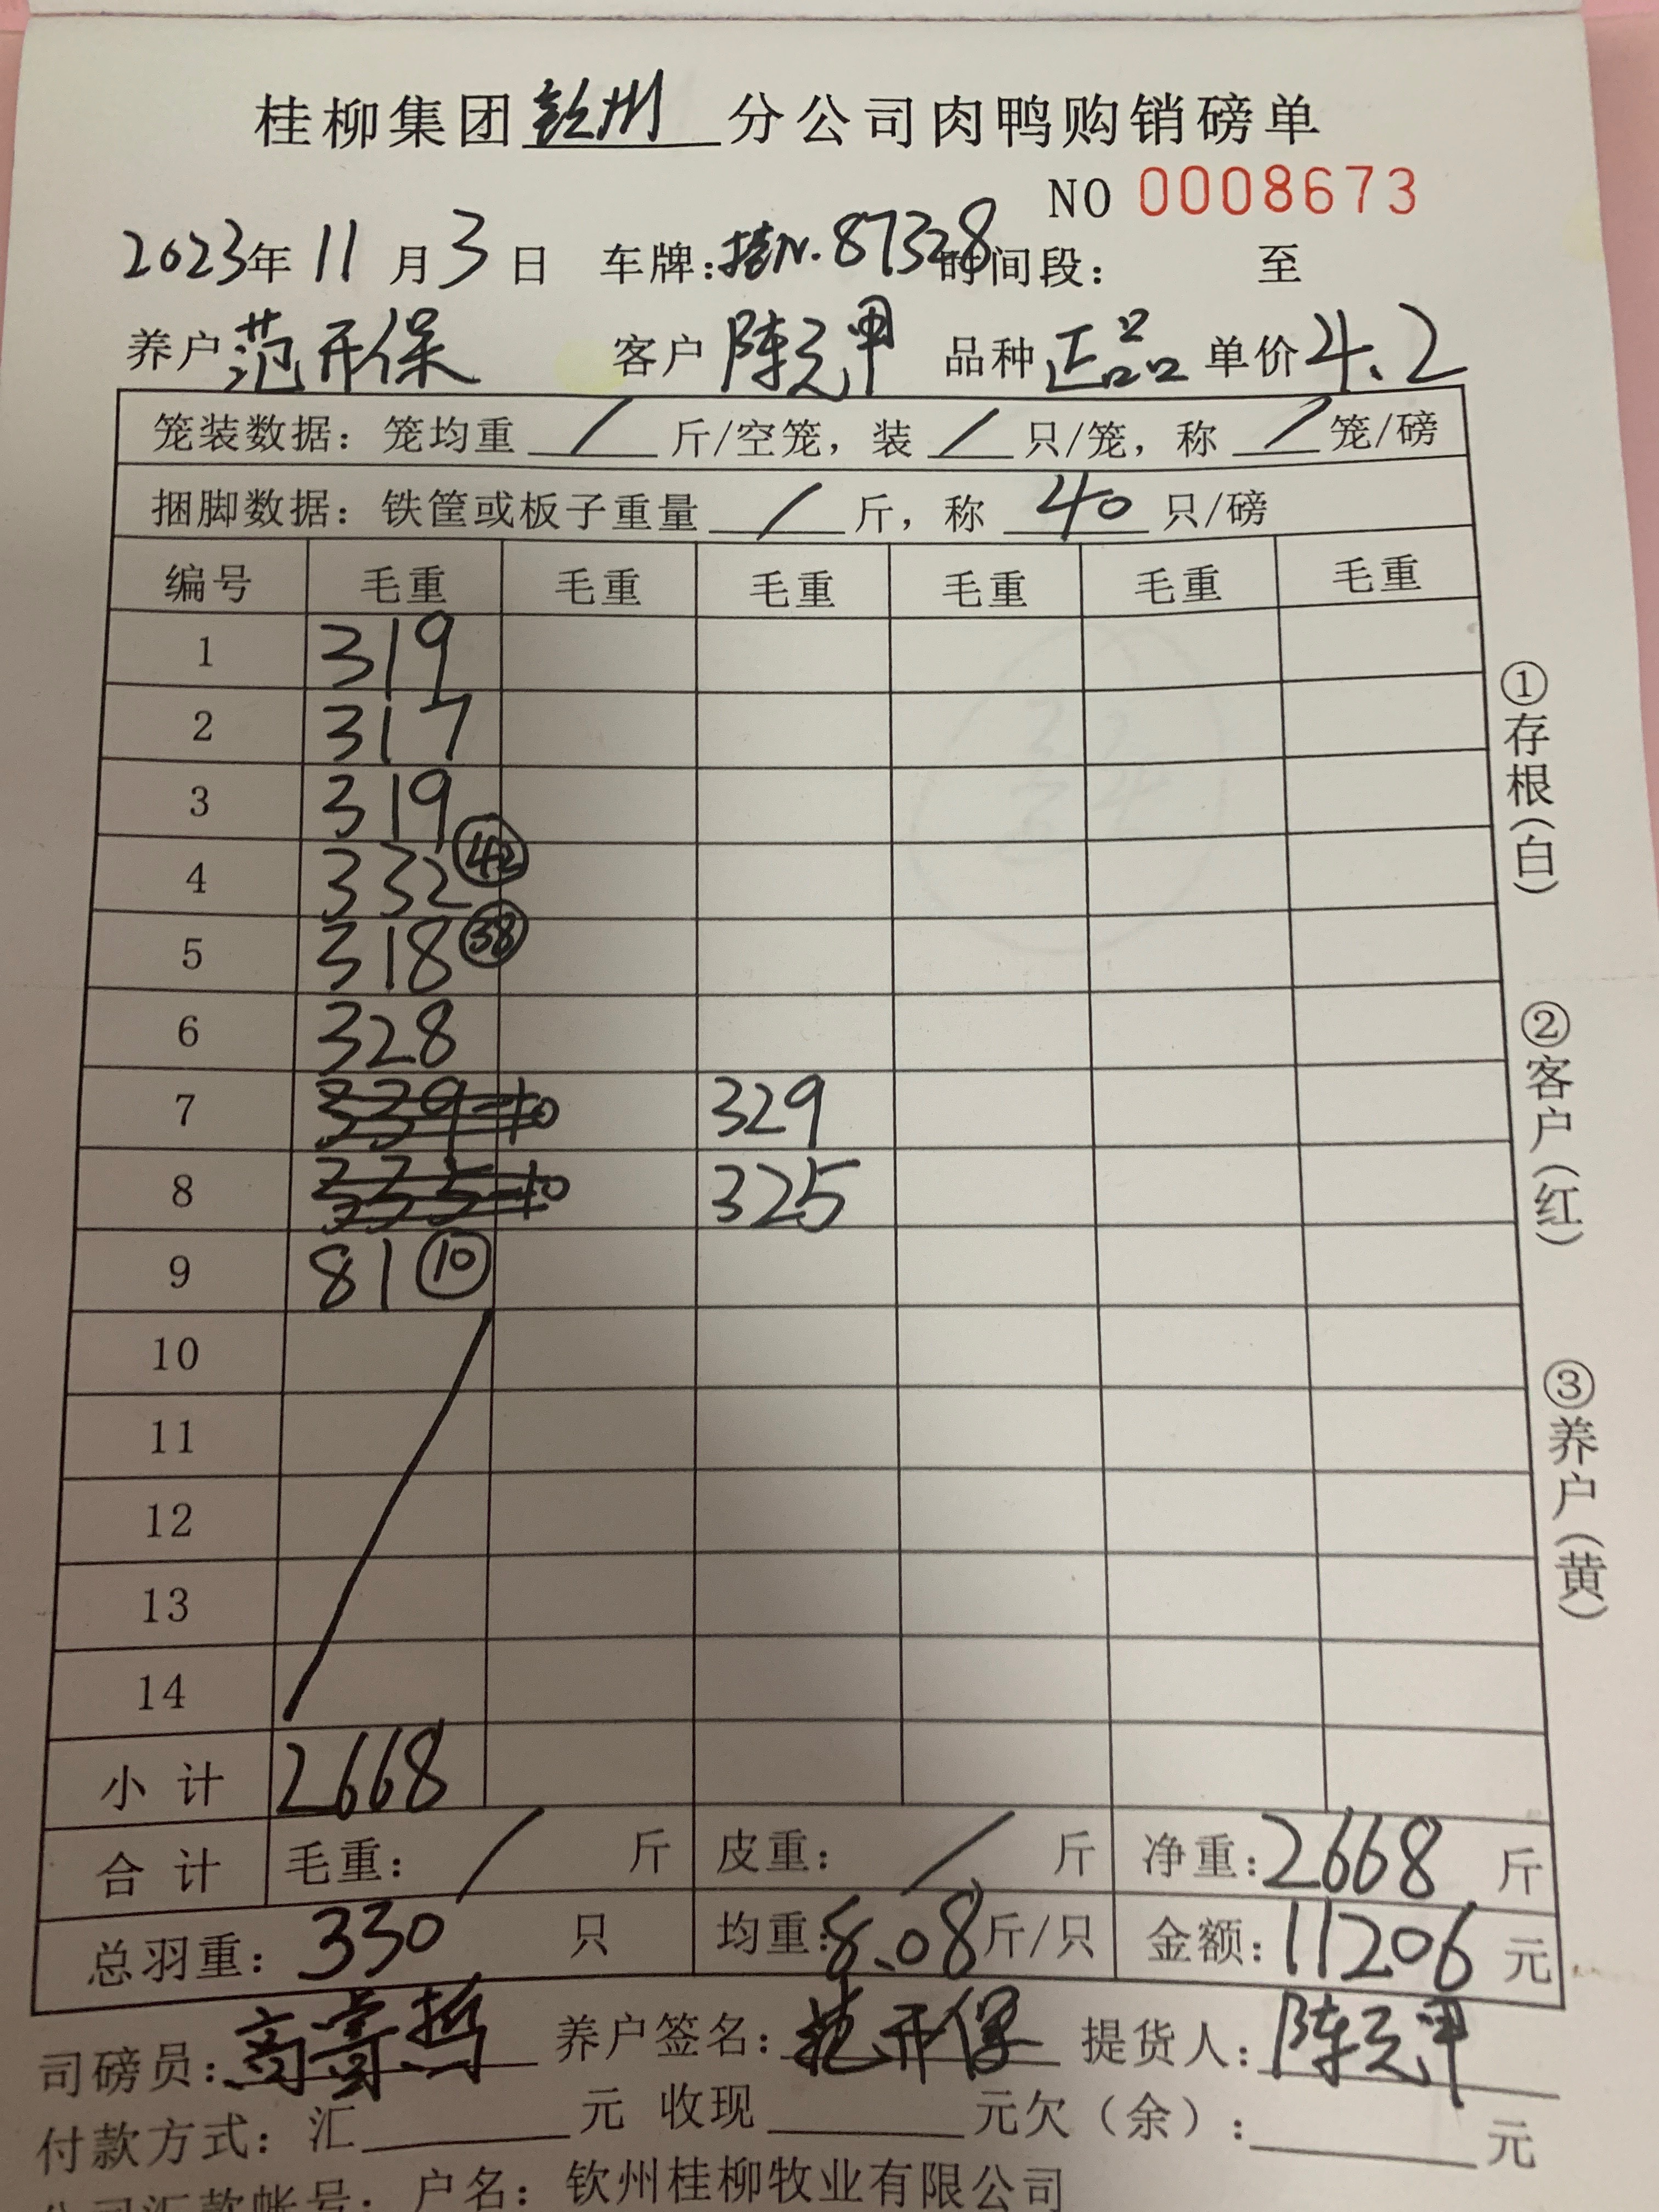 桂柳集团钦州分公司肉鸭购销磅单
NO 0008673
2023年 11月3日 车牌:桂N.87328 时间段: 至
养户 范开保 客户 陈元甲 品种 正品 单价 4.2
笼装数据: 笼均重 / 斤/空笼, 装 / 只/笼, 称 / 笼/磅
捆脚数据: 铁筐或板子重量 / 斤, 称 40 只/磅
编号 毛重 毛重 毛重 毛重 毛重 毛重
1 319
2 317
3 319
4 332 42
5 318 38
6 328
7 339-10 329
8 335-10 325
9 81 10
10
11
12
13
14
小计 2668
合计 毛重: / 斤 皮重: / 斤 净重: 2668 斤
总羽重: 330 只 均重: 8.08 斤/只 金额: 11206 元
司磅员: 养户签名: 范开保 提货人: 陈元甲
付款方式: 汇 元 收现 元欠(余): 元
公司汇款帐号: 户名: 钦州桂柳牧业有限公司
①存根(白)
②客户(红)
③养户(黄)